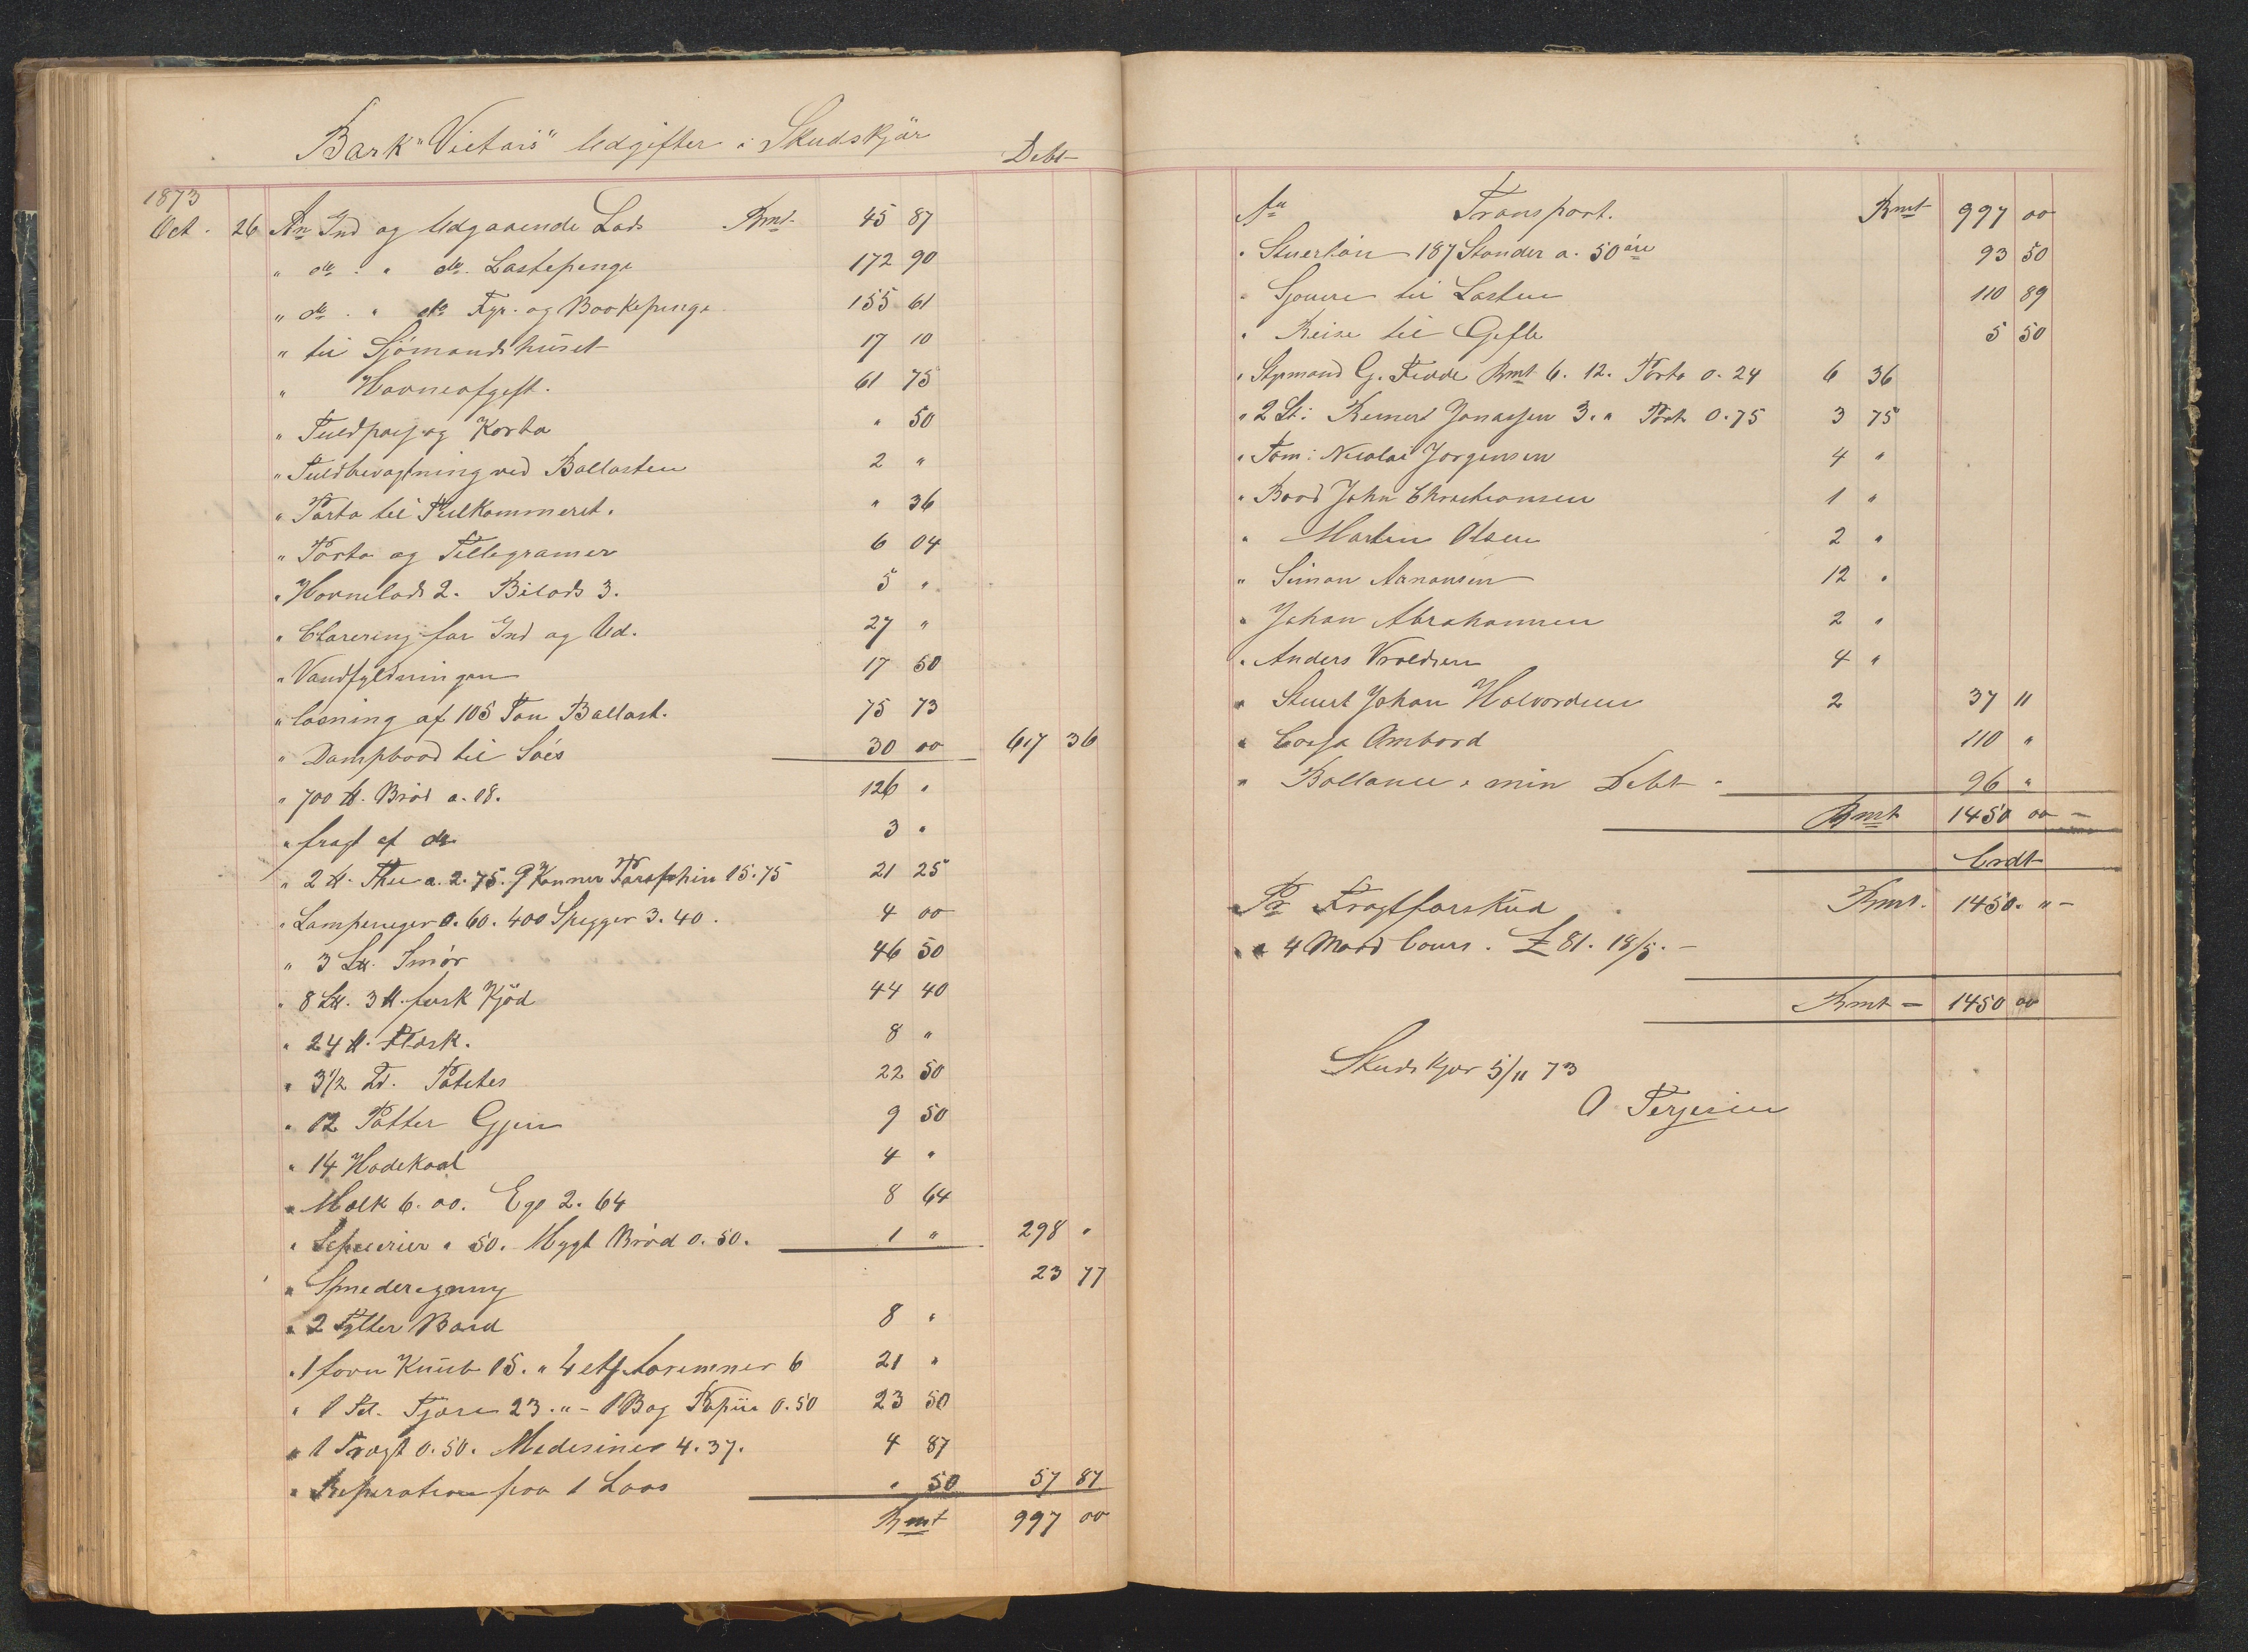 Bark "Victais" Udgifter i Skudskjær
Debt
1873
Oct. 26 An Ind og Udgaaende Lods Rmt 45 87
" do " do Lastepenge 172 90
" do " do Fyr- og Baakepenge 155 61
" til Sjömandshuset 17 10
" Havneafgift. 61 75
" Tuldpas og Korta " 50
" Tuldbevagtning ved Ballasten 2 "
" Porto til Tulkammeret. " 36
" Porto og Tellegramer 6 04
" Havnelods 2. Bilods 3. 5 "
" Clarering for Ind og Ud. 27 "
" Vandfyldningen 17 50
" losning af 105 Ton Ballast. 75 73
" Dampbaad til Söes 30 00 617 36
" 700 ℔. Bröd a. 18. 126 "
" fragt af do 3 "
" 2 ℔. Thee a. 2.75. 9 Kanner Paraphin 15.75 21 25
" Lampeveger 0.60. 400 Spigger 3.40. 4 00
" 3 L℔. Smör 46 50
" 8 L℔. 3 ℔. fersk Kjöd 44 40
" 24 ℔. Flæsk. 8 "
" 3½ Td. Potetes 22 50
" 12 Potter Gjin 9 50
" 14 Hodekaal 4 "
" Mælk 6.00. Eg 2.64 8 64
" 50. Mygt Bröd 0.50. 1 " 298 "
" Smederegning 23 77
" 2 Tylter Bord 8 "
" 1 favn Knub 15. " 4 6 21 "
" 1 Td. Tjære 23. " - 1 Bog Papiir 0.50 23 50
" 1 Tragt 0.50. Medesiner 4.37. 4 87
" Reperation paa 1 Laas " 50 57 87
Rmt 997 00
An Transport. Rmt 997 00
" Stuerlön 187 Stander a. 50 öre 93 50
" Sjouere til Lasten 110 89
" Reise til Gefle 5 50
" Styrmand G. Fedde Rmt 6.12. Porto 0.24 6 36
" 2 St: Reinert Jonassen 3. " Port 0.75 3 75
" Töm: Nicolai Jörgensen 4 "
" Baad John Christiansen 1 "
" Martin Olsen 2 "
" Simon Aanonsen 12 "
" Johan Abrahamsen 2 "
" Anders Vroldsen 4 "
" Stuert Johan Halvordsen 2 37 11
" Cassa Ombord 110 "
" Ballance i min Debt 96 "
Rmt 1450 00
Crdt
Pr Fragtforskud Rmt. 1450. "
" 4 Maad Cours. £ 81. 18/5.
Rmt 1450 00
Skudskjær 5/11 73
O Terjesen